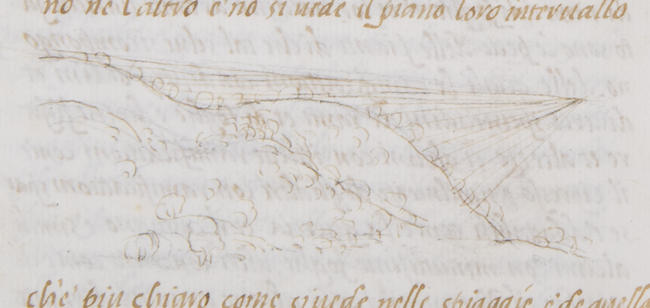 no ne l'altro e no si uede il piano loro interuallo
che piu chiaro come si uede nelle spiaggie e de quelle